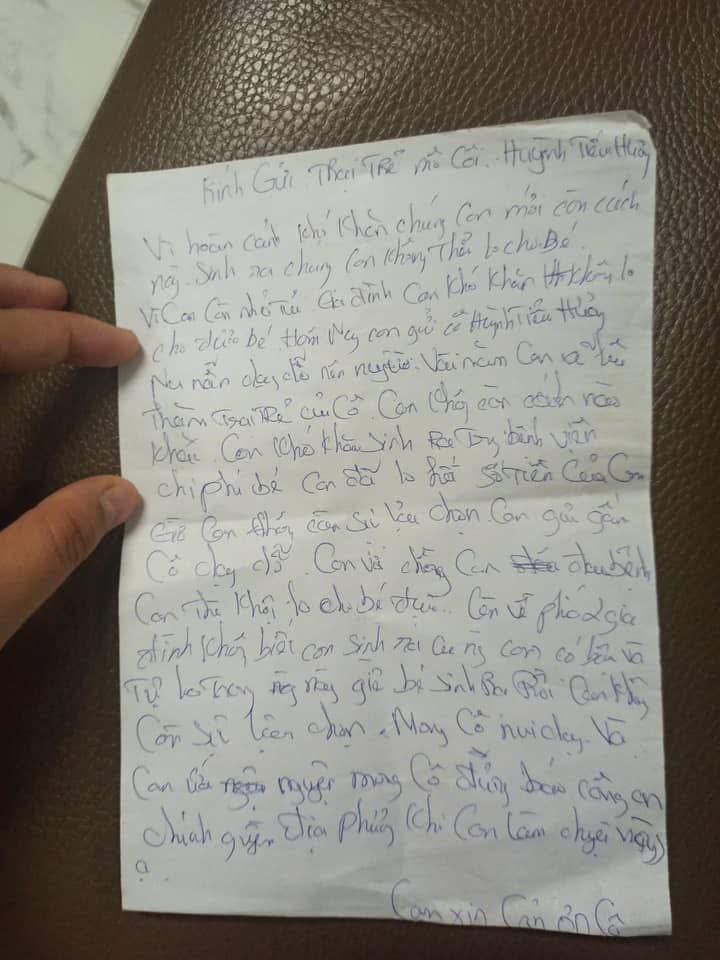 Kính Gửi Trại Trẻ mồ Côi. Huỳnh Tiểu Hường
Vì hoàn cảnh khó khăn chúng Con mới còn cách
này. Sinh ra chung Con không Thể lo cho Bé.
Vì Con Còn nhỏ Gia đình Con khó khăn không lo
cho đứa bé Hôm Nay con gửi cô Huỳnh Tiểu Hường
dạy dỗ nên người. Vài năm Con sẽ
Thăm Trại Trẻ của Cô. Con không còn cách nào
khác. Con khó khăn sinh bé Trong bệnh viện
chi phí bé Con đã lo hết số Tiền Của Con
Giờ Con không còn sự lựa chọn Con gửi gắm
Cô dạy dỗ. Con và chồng Con đau bệnh
Con không lo cho bé được. Còn về phía gia
đình không biết con sinh con có bầu và
Tự lo giờ bé sinh Ra Rồi Con không
Còn sự lựa chọn. Mong Cô nuôi dạy. Và
Con nguyện mong Cô đừng báo công an
chính quyền địa phương khi Con làm chuyện này
ạ.
Con xin Cảm ơn Cô